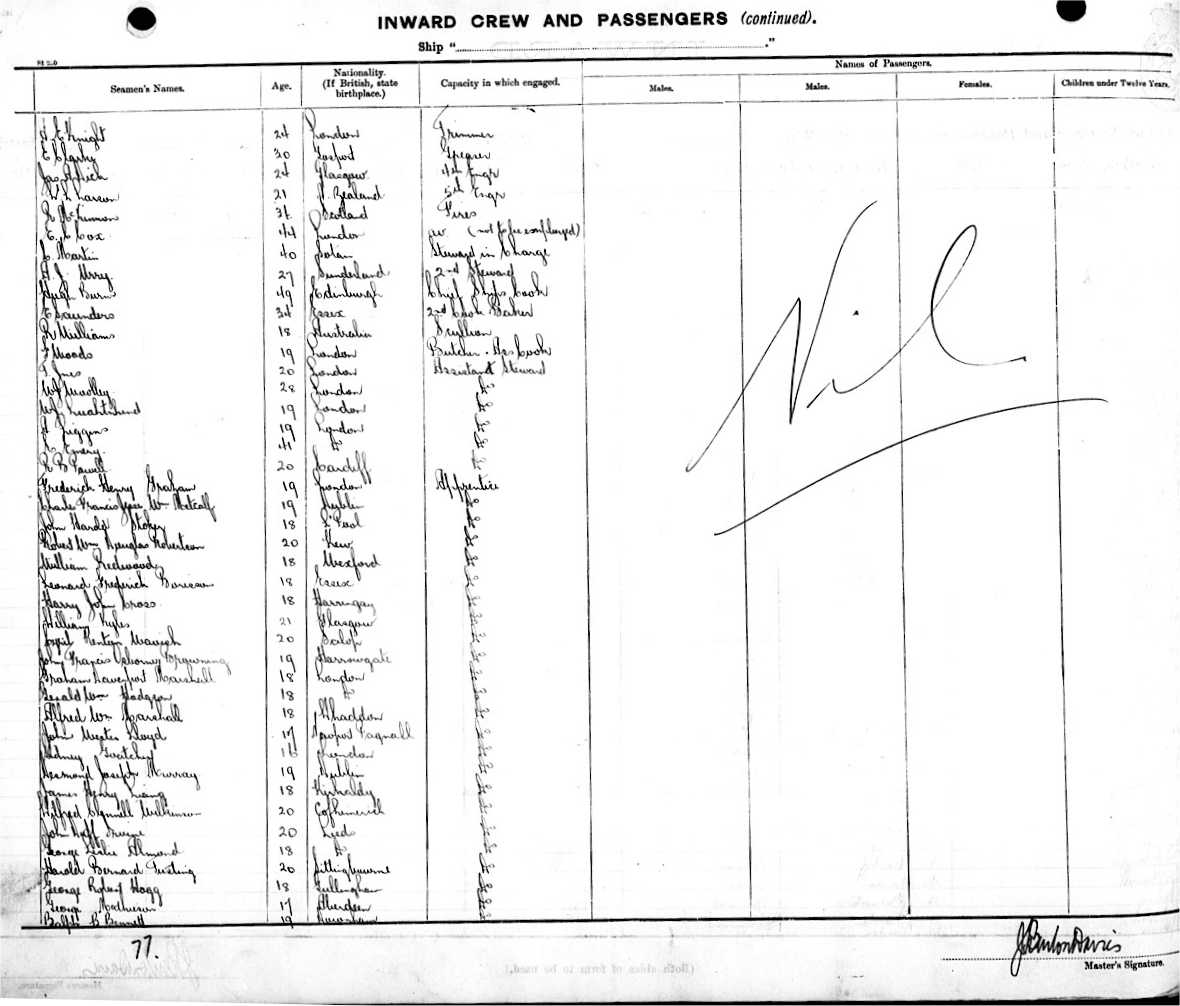 INWARD CREW AND PASSENGERS (continued).
Ship " "
Names of Passengers.
Seamen's Names. Age. Nationality. (If British, state birthplace.) Capacity in which engaged. Males. Males. Females. Children under Twelve Years.
H E Knight 24 London Trimmer
E 30 Gosport Greaser
Jas 24 Glasgow 4th Engr
Larson 21 N. Zealand 5th Engr
R McKinnon 34 Scotland Fires
E C Cox 44 London (not to be employed)
C Martin 40 Steward in Charge
A J Urry 27 Sunderland 2nd Steward
Hugh Burn 49 Edinburgh Chief Ships Cook
E Saunders 34 Essex 2nd Cook Baker
R Williams 18 Australia Scullion
F Woods 19 London Butcher Cook
20 London Assistant Steward
W Woolley 28 London do
W 19 London do
A Figgins 19 London do
Emery 41 do do
R B Powell 20 Cardiff do
Frederick Henry Graham 19 London Apprentice
Charles Francis Wm Metcalf 19 Dublin do
John Harold Stokes 18 L'Pool do
Robert Wm Douglas Robertson 20 Kew do
William Redwood 18 Wexford do
Leonard Frederick 18 Essex do
Harry John Cross 18 Harringay do
William Kyles 21 Glasgow do
20 Salop do
John Francis Osborne Browning 19 Harrowgate do
Graham Davenport Marshall 18 London do
Gerald Wm Hodgson 18 do do
Alfred Wm Marshall 18 Whaddon do
John Lloyd 17 Pagnall do
Sidney 16 London do
Desmond Joseph Murray 19 Dublin do
James Henry Liang 18 Kirkcaldy do
Wilfred Wilkinson 20 do
John Irvine 20 Leeds do
George Leslie Almond 18 do do
Harold Bernard 20 Sittingbourne do
George Robert Hogg 18 Gillingham do
George Mathieson 17 Aberdeen do
Ralph B Bennett 19 do
Nil
77.
J Barlow Davis
Master's Signature.